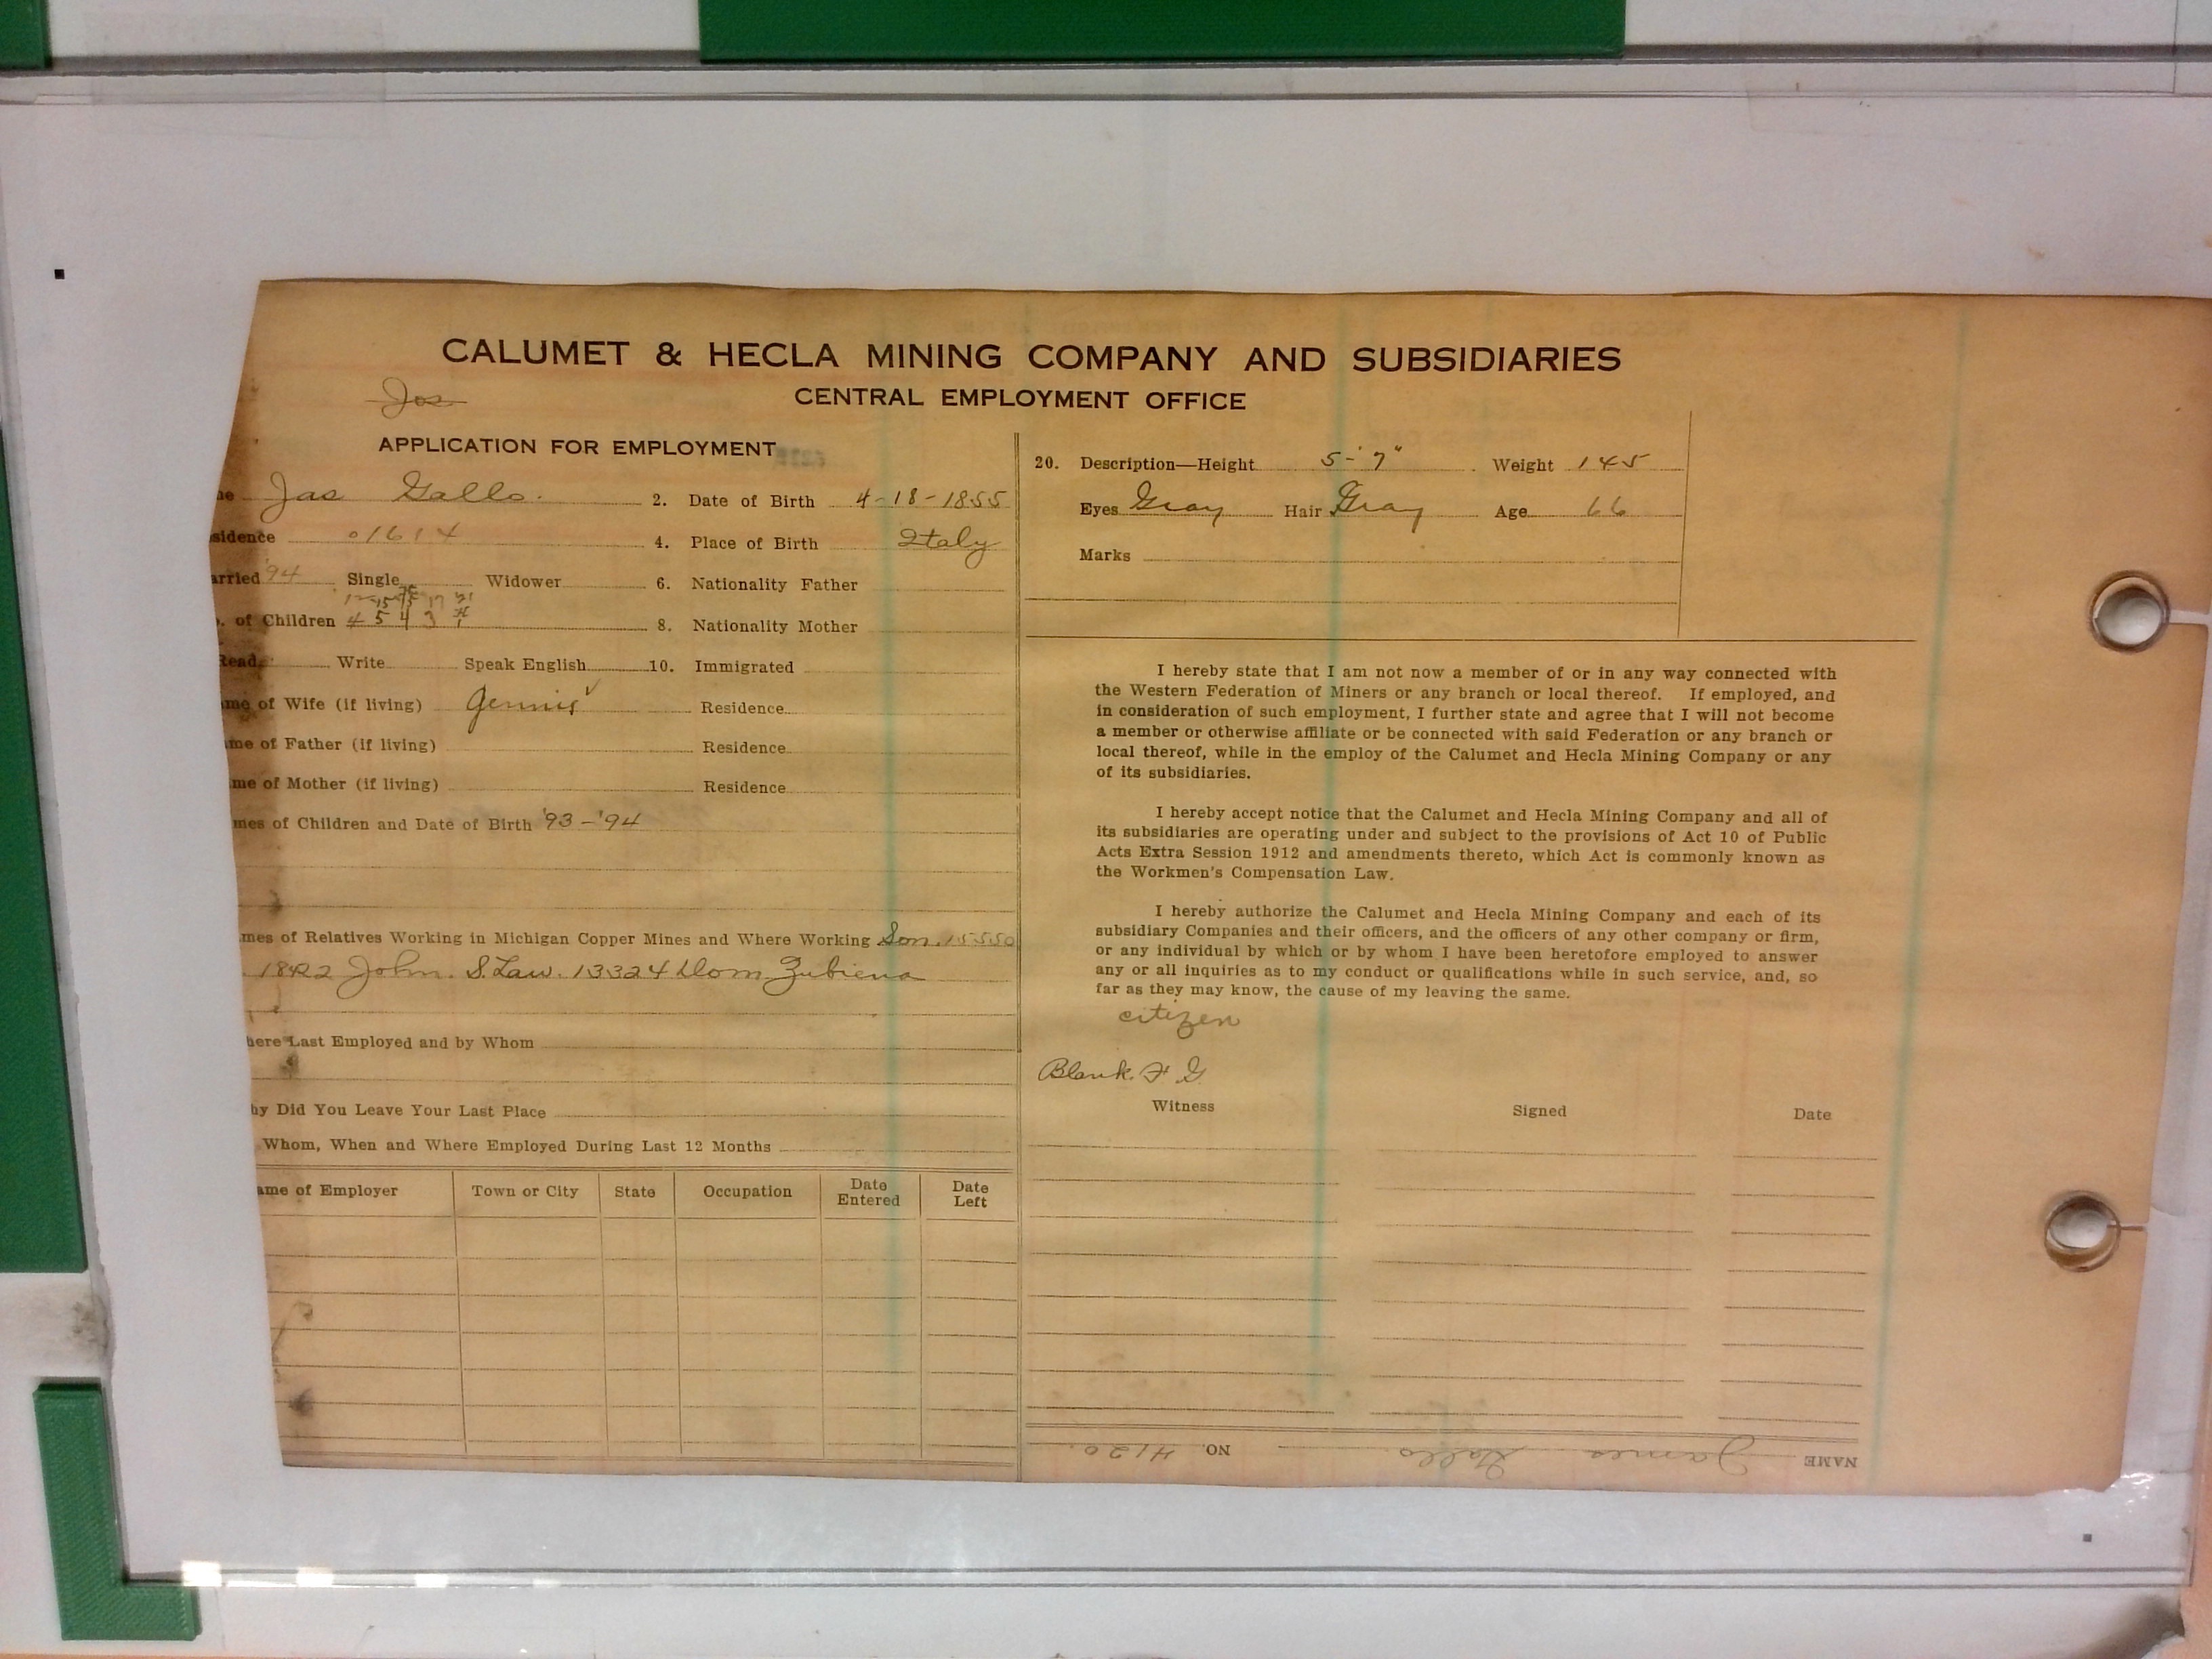 CALUMET & HECLA MINING COMPANY AND SUBSIDIARIES
Jos
CENTRAL EMPLOYMENT OFFICE
APPLICATION FOR EMPLOYMENT
me Jas Gallo. 2. Date of Birth 4-18-1855
sidence 01614 4. Place of Birth Italy
arried 94 Single Widower 6. Nationality Father
. of Children 4 5 4 3 8. Nationality Mother
Read Write Speak English 10. Immigrated
me of Wife (if living) Residence
me of Father (if living) Residence
me of Mother (if living) Residence
mes of Children and Date of Birth '93-'94
mes of Relatives Working in Michigan Copper Mines and Where Working Son. 15550
John. S. Law. 13324 Dom. Zubiena
here Last Employed and by Whom
hy Did You Leave Your Last Place
Whom, When and Where Employed During Last 12 Months
ame of Employer Town or City State Occupation Date Entered Date Left
20. Description—Height 5-7" Weight 145
Eyes Gray Hair Gray Age 66
Marks
I hereby state that I am not now a member of or in any way connected with
the Western Federation of Miners or any branch or local thereof. If employed, and
in consideration of such employment, I further state and agree that I will not become
a member or otherwise affiliate or be connected with said Federation or any branch or
local thereof, while in the employ of the Calumet and Hecla Mining Company or any
of its subsidiaries.
I hereby accept notice that the Calumet and Hecla Mining Company and all of
its subsidiaries are operating under and subject to the provisions of Act 10 of Public
Acts Extra Session 1912 and amendments thereto, which Act is commonly known as
the Workmen's Compensation Law.
I hereby authorize the Calumet and Hecla Mining Company and each of its
subsidiary Companies and their officers, and the officers of any other company or firm,
or any individual by which or by whom I have been heretofore employed to answer
any or all inquiries as to my conduct or qualifications while in such service, and, so
far as they may know, the cause of my leaving the same.
citizen
Blank. F G
Witness Signed Date
NAME James Gallo. NO. 4120.